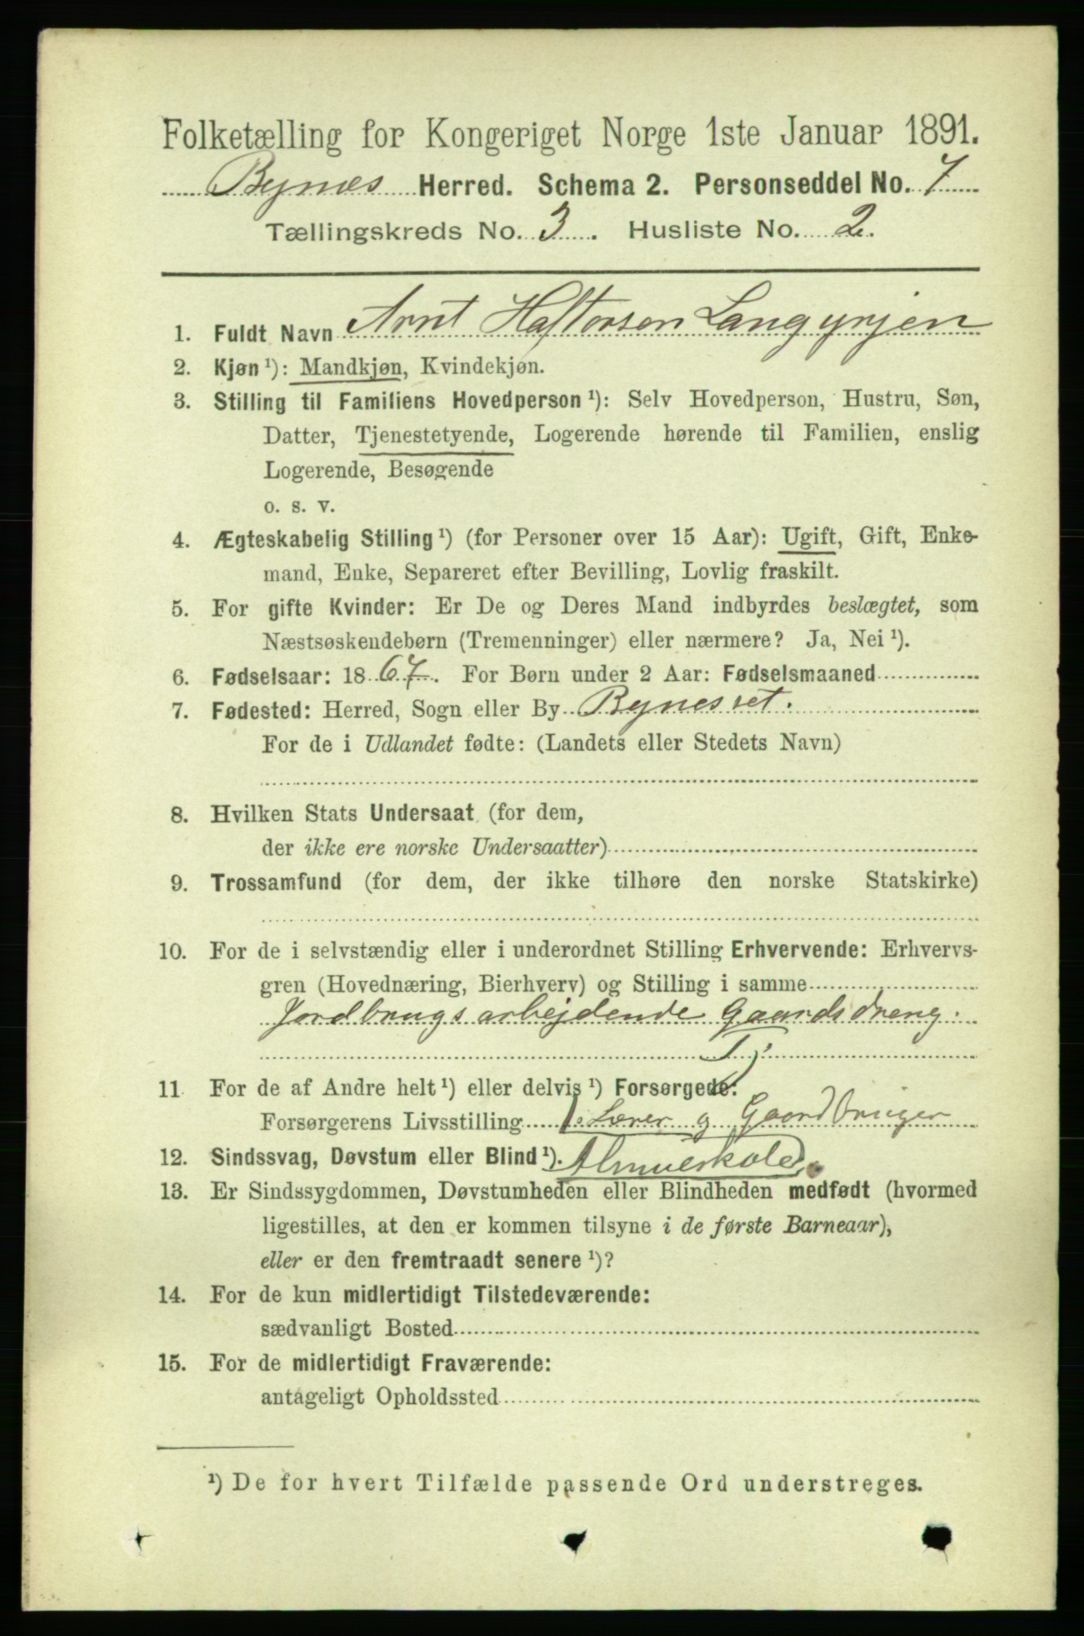 Folketælling for Kongeriget Norge 1ste Januar 1891.
Bynæs Herred. Schema 2. Personseddel No. 7
Tællingskreds No. 3. Husliste No. 2.
1. Fuldt Navn Arnt Haftorsen Langørjen
2. Kjøn ¹): Mandkjøn, Kvindekjøn.
3. Stilling til Familiens Hovedperson ¹): Selv Hovedperson, Hustru, Søn,
Datter, Tjenestetyende, Logerende hørende til Familien, enslig
Logerende, Besøgende
o. s. v.
4. Ægteskabelig Stilling ¹) (for Personer over 15 Aar): Ugift, Gift, Enke-
mand, Enke, Separeret efter Bevilling, Lovlig fraskilt.
5. For gifte Kvinder: Er De og Deres Mand indbyrdes beslægtet, som
Næstsøskendebørn (Tremenninger) eller nærmere? Ja, Nei ¹).
6. Fødselsaar: 1867. For Børn under 2 Aar: Fødselsmaaned
7. Fødested: Herred, Sogn eller By Bynesset.
For de i Udlandet fødte: (Landets eller Stedets Navn)
8. Hvilken Stats Undersaat (for dem,
der ikke ere norske Undersaatter)
9. Trossamfund (for dem, der ikke tilhøre den norske Statskirke)
10. For de i selvstændig eller i underordnet Stilling Erhvervende: Erhvervs-
gren (Hovednæring, Bierhverv) og Stilling i samme
Jordbrugsarbejdende Gaardsdreng.
Tj.
11 For de af Andre helt ¹) eller delvis ¹) Forsørgede:
Forsørgerens Livsstilling Lærer og Gaardbruger
12. Sindssvag, Døvstum eller Blind ¹). Almueskole
13. Er Sindssygdommen, Døvstumheden eller Blindheden medfødt (hvormed
ligestilles, at den er kommen tilsyne i de første Barneaar),
eller er den fremtraadt senere ¹)?
14. For de kun midlertidigt Tilstedeværende:
sædvanligt Bosted
15. For de midlertidigt Fraværende:
antageligt Opholdssted
¹) De for hvert Tilfælde passende Ord understreges.